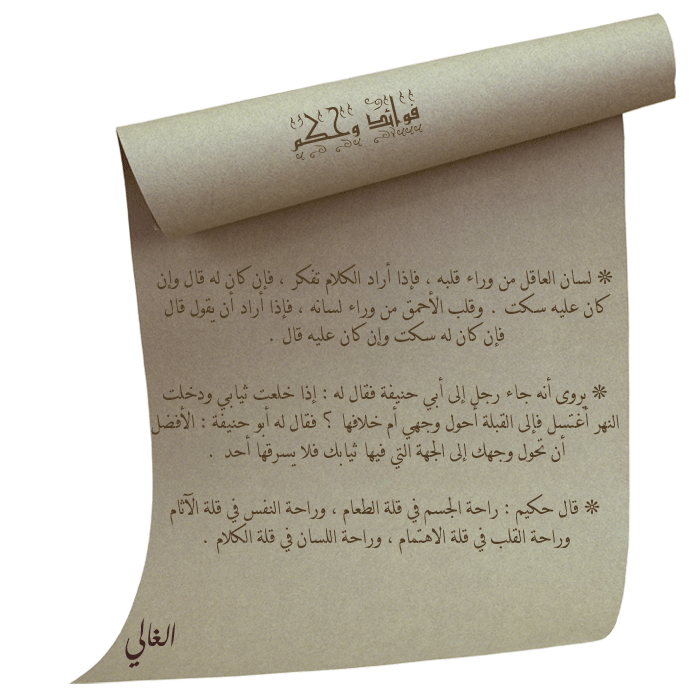 فوائد وحكم
❊ لسان العاقل من وراء قلبه ، فإذا أراد الكلام تفكر ، فإن كان له قال وإن
كان عليه سكت . وقلب الأحمق من وراء لسانه ، فإذا أراد أن يقول قال
فإن كان له سكت وإن كان عليه قال .
❊ يروى أنه جاء رجل إلى أبي حنيفة فقال له : إذا خلعت ثيابي ودخلت
النهر أغتسل فإلى القبلة أحول وجهي أم خلافها ؟ فقال له أبو حنيفة : الأفضل
أن تحول وجهك إلى الجهة التي فيها ثيابك فلا يسرقها أحد .
❊ قال حكيم : راحة الجسم في قلة الطعام ، وراحة النفس في قلة الآثام
وراحة القلب في قلة الاهتمام ، وراحة اللسان في قلة الكلام .
الغالي